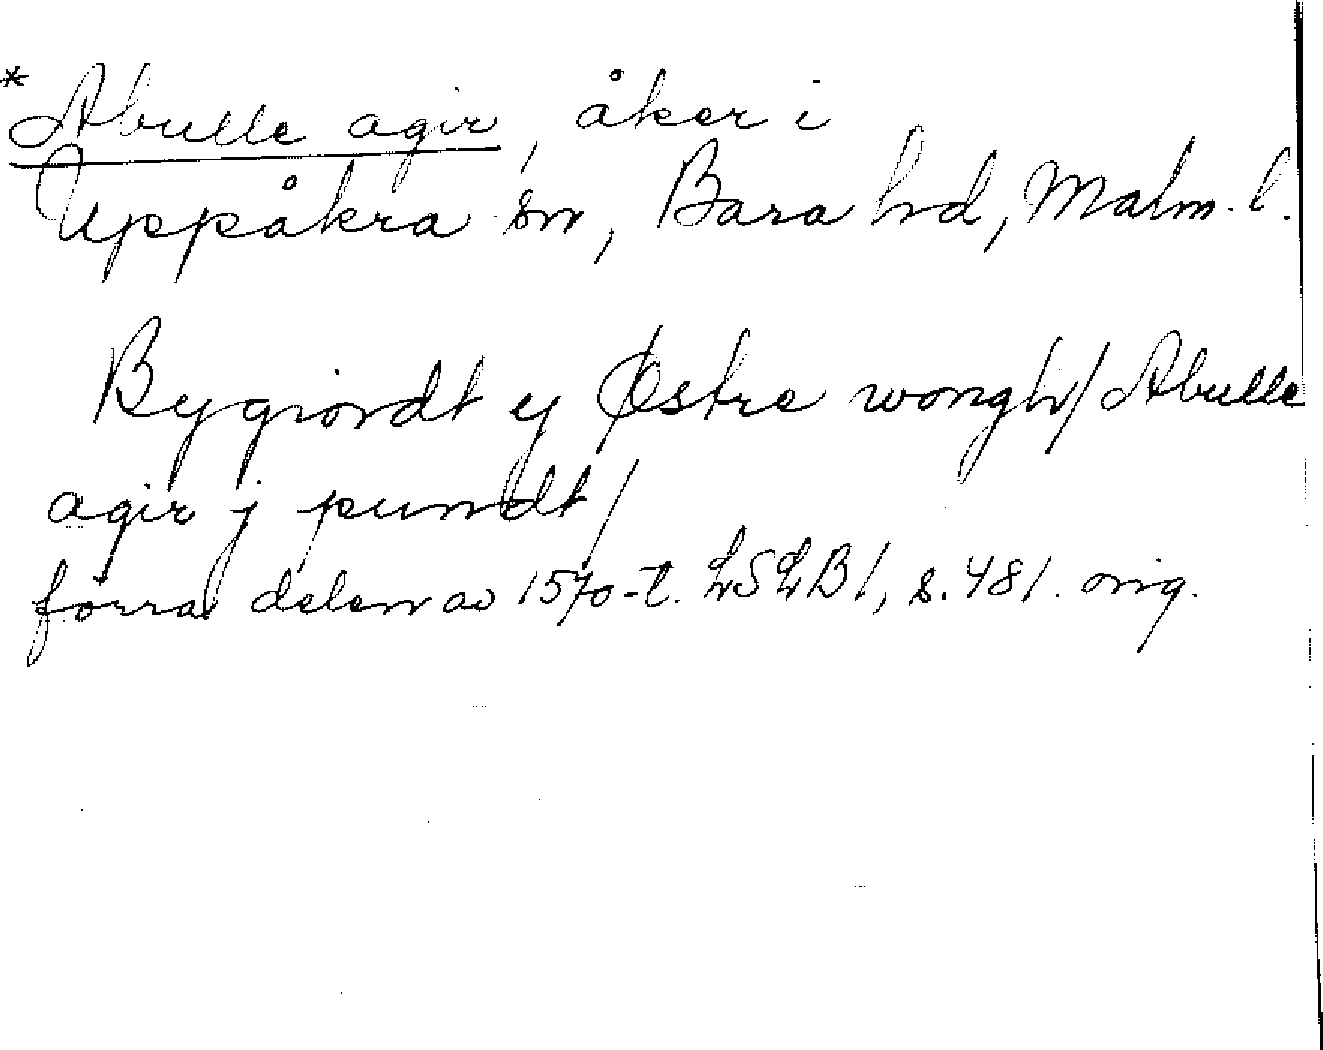 *Abulle agir, åker i
Uppåkra sn, Bara hd, Malm. l.
Bygiordt y Østre wongh/ Abulle
agir j pundt/
förra delen av 1570-t. LSLB 1, s. 481. orig.